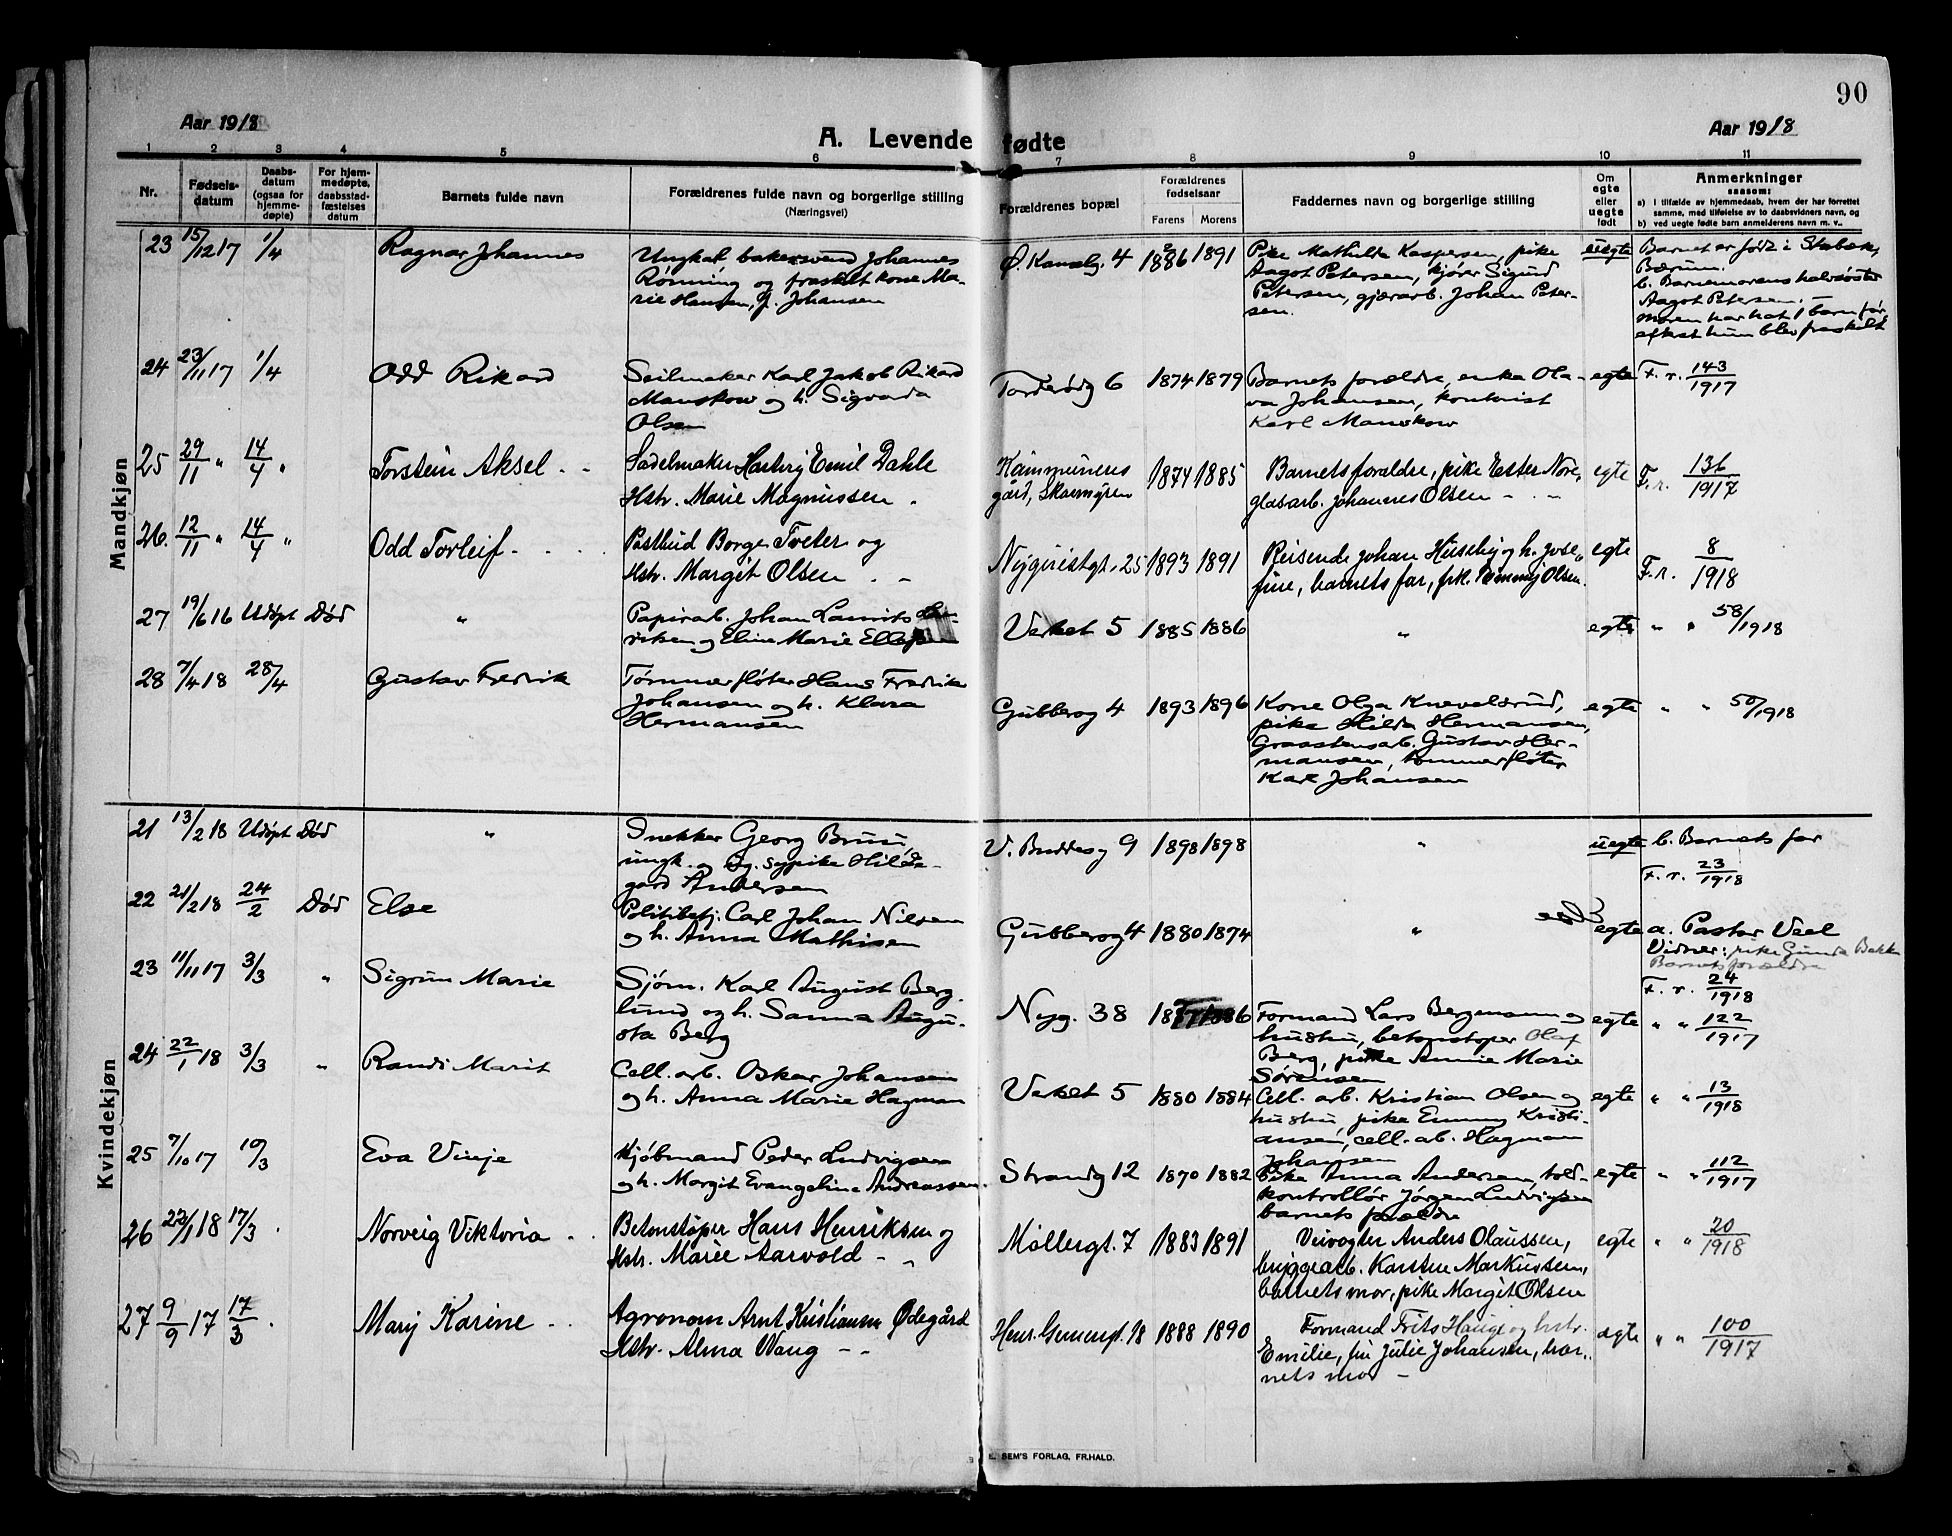 90
Aar 1918
A. Levende fødte
Aar 1918
1 2 3 4 5 6 7 8 9 10 11
Nr.
Fødsels-
datum
Daabs-
datum
(ogsaa for
hjemme-
døpte)
For hjem-
medøpte,
daabsstad-
fæstelses
datum
Barnets fulde navn
Forældrenes fulde navn og borgerlige stilling
(Næringsvei)
Forældrenes bopæl
Forældrenes
fødselsaar
Farens Morens
Faddernes navn og borgerlige stilling
Om
egte
eller
uegte
født
Anmerkninger
saasom:
a) I tilfælde av hjemmedaab, hvem der har forrettet
samme, med tilføielse av to daabsvidners navn, og
b) ved uegte fødte barn anmelderens navn m. v.
Mandkjøn
23 15/12 17 1/4 Ragnar Johannes
Ungkal bakersvend Johannes
Rønning og fraskilt kone Ma-
rie Hansen, f. Johansen
Ø. Kanalg. 4 1886 1891
Pike Mathilda Kaspersen, pike
Aagot Petersen, kjører Sigurd
Petersen, gjærarb. Johan Peter-
sen.
uegte
Barnet er født i Stabæk,
Bærum.
b. Barnemorens halvsøster
Aagot Petersen.
Moren har hat 1 barn før,
efterat hun blev fraskilt
24 23/11 17 1/4 Odd Rikard
Seilmaker Karl Jakob Rikard
Manskow og h. Sigvarda
Olsen
Torderødg 6 1874 1879
Barnets forældre, enke Ola-
va Johansen, kontorist
Karl Manskow
egte F. r. 143/1917
25 29/11 " 14/4 " Torstein Aksel
Sadelmaker Hartvig Emil Dahle
Hstr. Marie Magnussen
Kommunens
gård, Skarmyren
1874 1885
Barnets forældre, pike Ester Nore,
glasarb. Johannes Olsen
egte F. r. 136/1917
26. 12/11 " 14/4 " Odd Torleif
Postbud Borge Tveter og
Hstr. Margit Olsen
Nyquistgt. 25 1893 1891
Reisende Johan Huseby og h. Jose-
fine, barnets far, frk. Olsen
egte F. r. 8/1918
27 19/6 16 Udøpt Død "
Papirarb. Johan Laurits
og Eline Marie
Verket 5 1885 1886 " egte " " 58/1918
28 7/4 18 28/4 Gustav Fredrik
Tømmerfløter Hans Fredrik
Johansen og h. Klara
Hermansen
Gubberog 4 1893 1896
Kone Olga Knevelsrud,
pike Hilda Hermansen,
Graastensarb. Gustav Her-
mansen, tømmerfløter
Karl Johansen
egte " " 50/1918
Kvindekjøn
21 13/2 18 Udøpt Død "
Snekker Georg Bruu
ungk. og ug. sypike Hilde-
gard Andersen
V. Buddesg 9 1898 1898 "
uegte b. Barnets far
F. r. 23/1918
22 21/2 18 24/2 Død Else
Politibetj. Carl Johan Nilsen
og h. Anna Mathisen
Gubberog 4 1880 1874 "
egte a. Pastor Veel
Vidner: pike Gunda Bakke
Barnets forældre
F. r. 24/1918
23 11/11 17 3/3 " Sigrun Marie
Sjøm. Karl August Berg-
lund og h. Sanna Augu-
sta Berg
Nyg. 38 1886
Formand Lars Bergmann og
hustru, betonstøper Olaf
Berg, pike Annie Marie
Sørensen
egte " " 122/1917
24 22/1 18 3/3 " Randi Marit
Cell. arb. Oskar Johansen
og h. Anna Marie Hagman
Verket 5 1880 1884
Cell. arb. Kristian Olsen og
hustru, pike Emmy Kristi-
ansen, cell. arb. Hagman
Johansen
egte " " 13/1918
25 7/10 17 10/3 Eva Vinje
Kjøbmand Peder Ludvigsen
og h. Margit Evangeline Andreassen
Strandg 12 1870 1882
Pike Anna Andersen, told-
kontrollør Jørgen Ludvigsen
barnets forældre
egte " " 112/1917
26 22/1 18 17/3 Norveig Viktoria
Betonstøper Hans Henriksen og
Hstr. Marie Aarvold
Møllergt. 7 1883 1891
Veivogter Anders Olaussen,
bryggearb. Karsten Markussen,
barnets mor, pike Margit Olsen
egte " " 20/1918
27 9/9 17 17/3 Mary Karine
Agronom Arnt Kristiansen Ødegård
Hstr. Alma Waug
Henr. Gernergt. 18 1888 1890
Formand Frits Hauge og hstr.
Emilie, frk Julie Johansen, bar-
nets mor
ægte " " 100/1917
E. SEM'S FORLAG, FR.HALD.